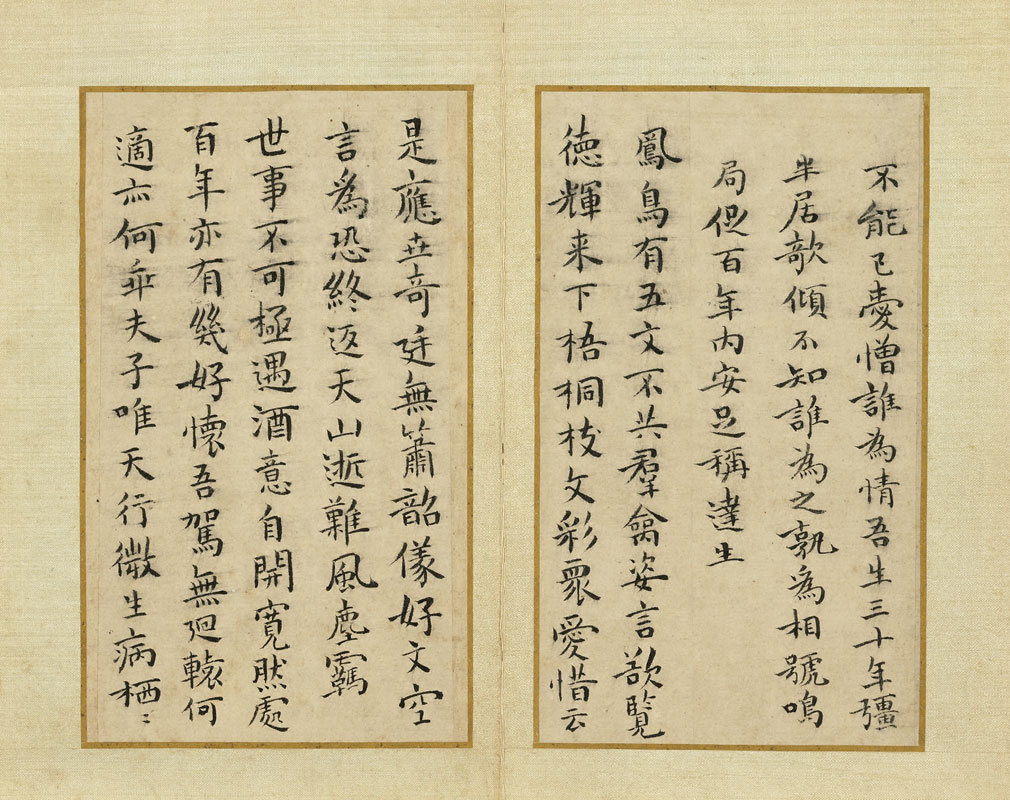 不能已憂憎誰為情吾生三十年彊
半居欹傾不知誰為之孰為相號鳴
局促百年內安足稱達生
鳳鳥有五文不共羣禽姿言欲覽
德輝来下梧桐枝文彩眾愛惜云
是應世奇廷無簫韶儀好文空
言為恐終返天山逝難風塵羈
世事不可極遇酒意自開寬然處
百年亦有幾好懷吾駕無迴轅何
適亦何乖夫子唯天行微生病栖〻